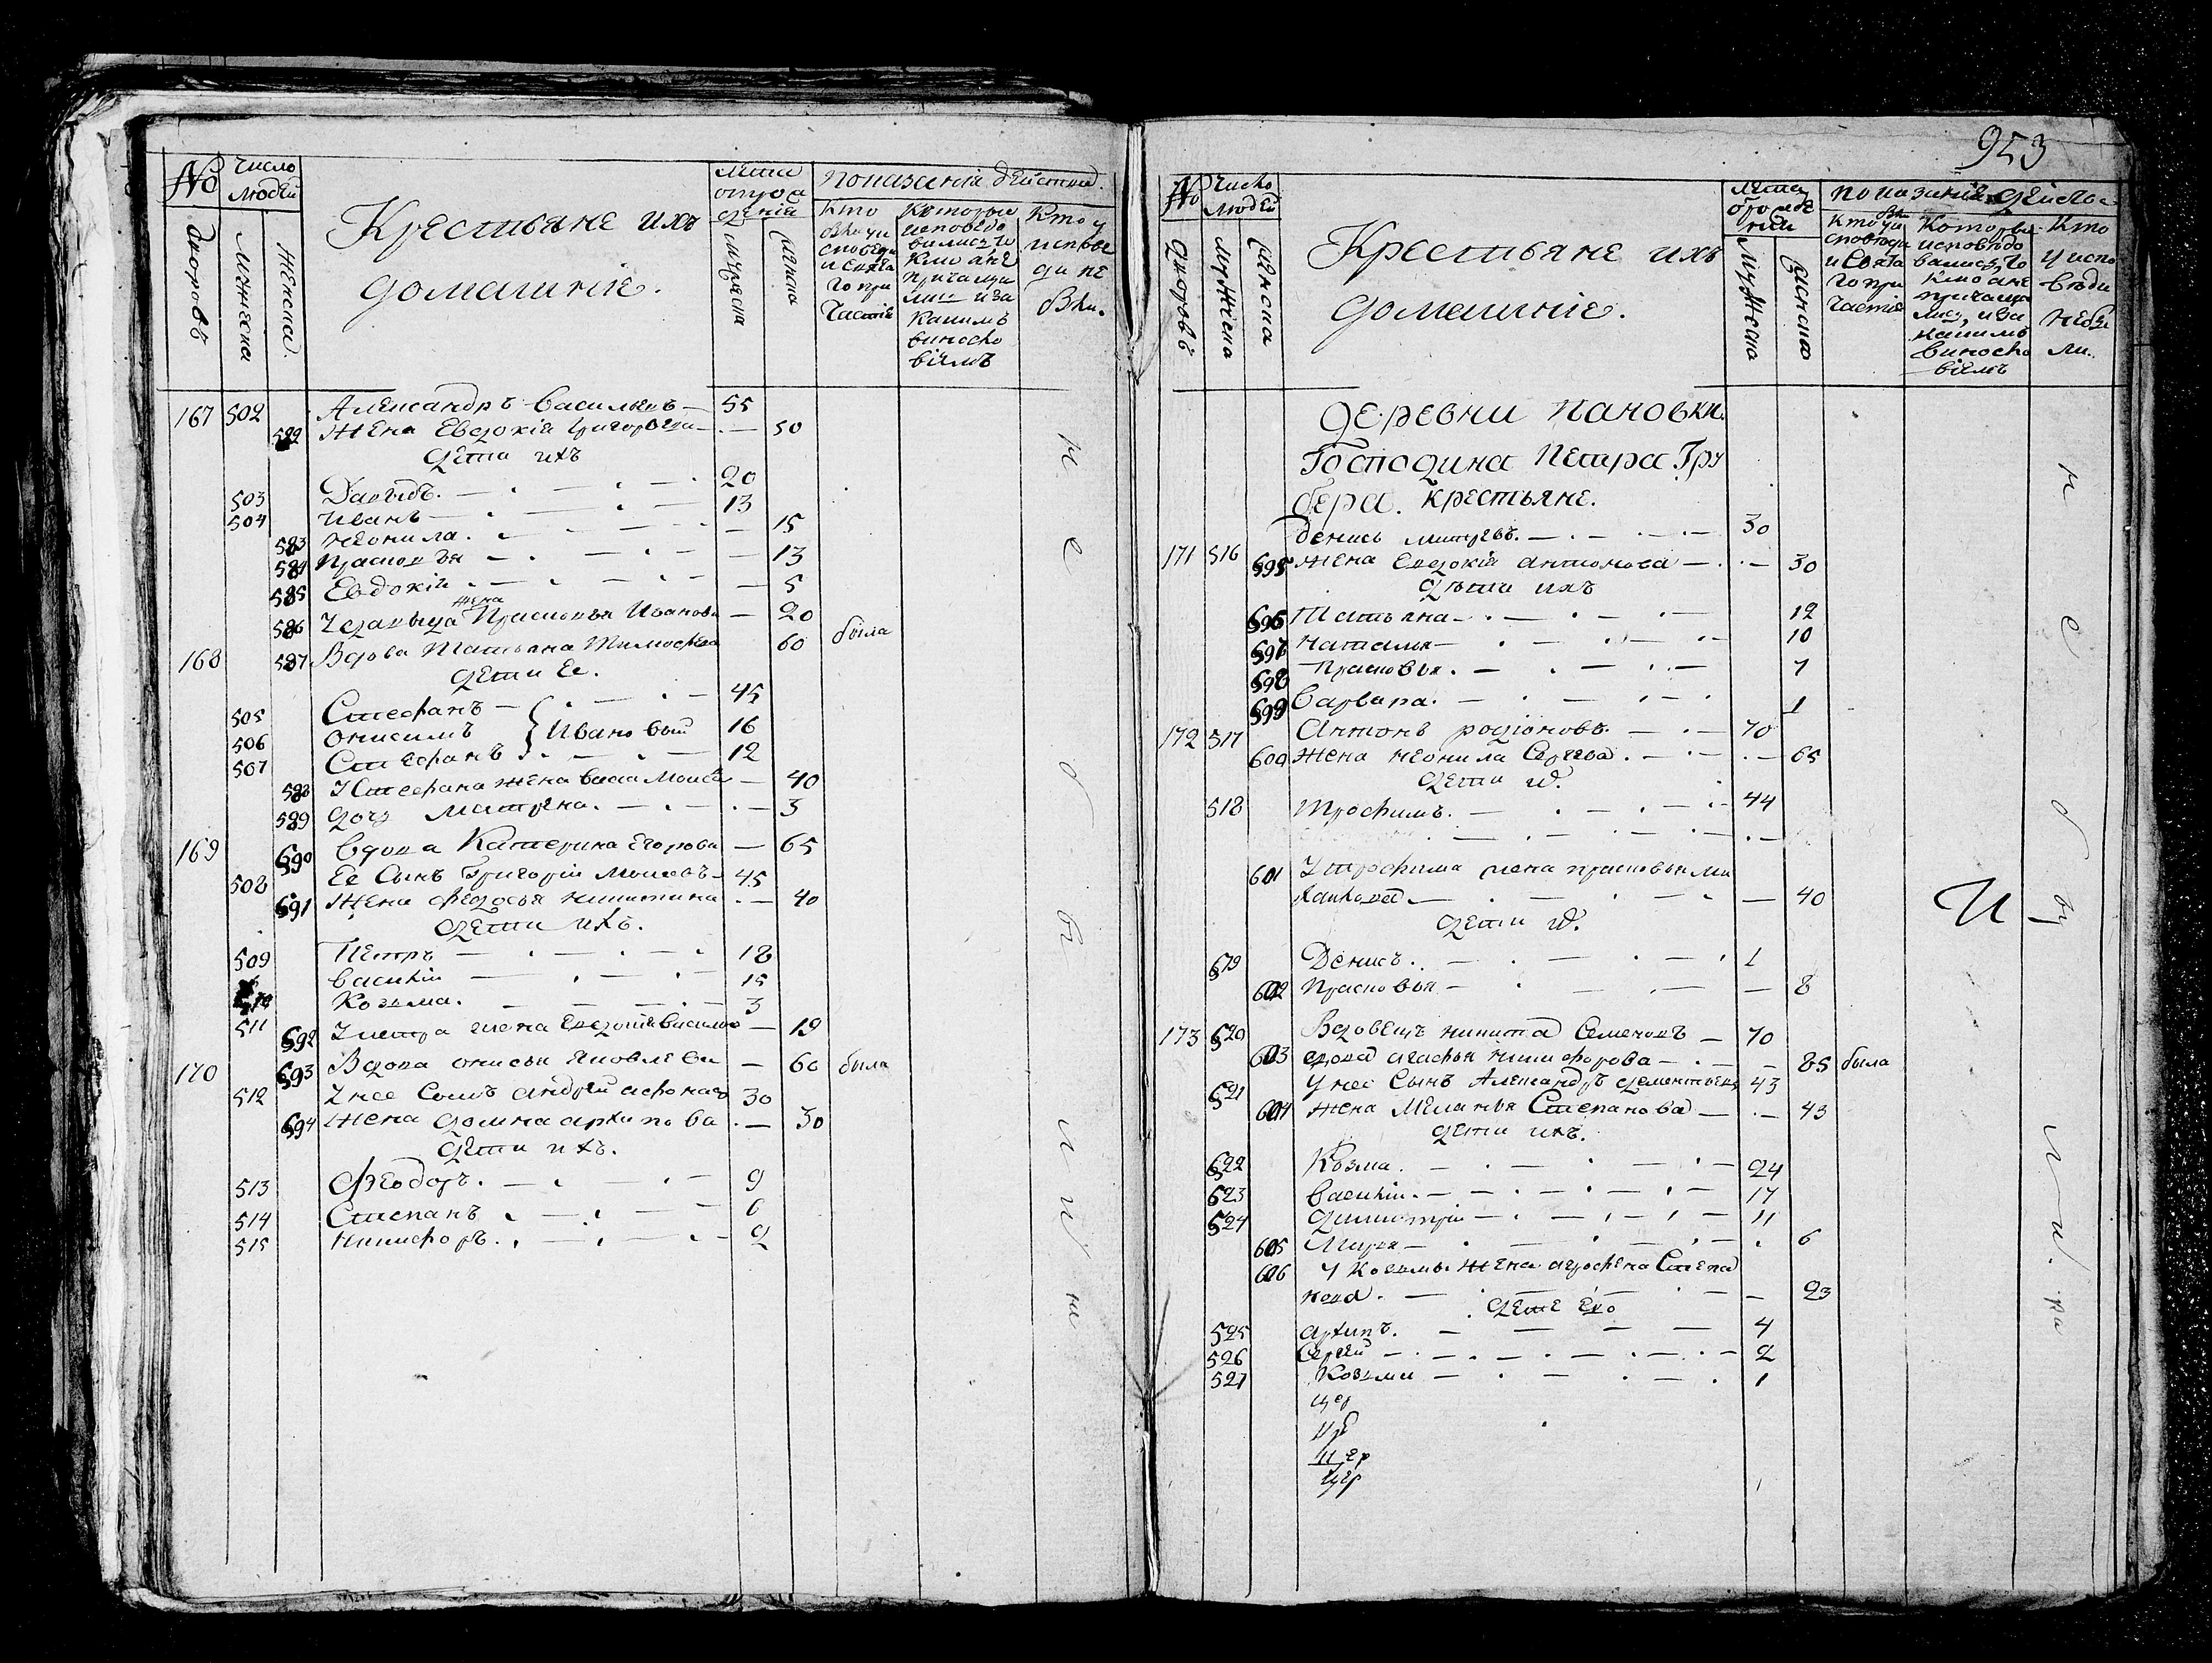 No Число людей
дворовъ мужеска женска
Крестьяне ихъ
домашніе.
лета от рожденія
мужеска женска
показаніе действа.
Кто были у исповеди и святаго причастія
Которыи исповедовались токмо а не причащались и за какимъ винословіемъ
Кто у исповеди не был.
167 502 Александръ Васильевъ — 55
582 Жена Евдокія Григорьева — 50
дети ихъ
503 Давыдъ. — 20
504 Иванъ — 13
583 Неонила. — 15
584 Прасковья — 13
585 Евдокія — 5
586 У Давыда жена Прасковья Иванова — 20
168 587 Вдова Татьяна Тимофеева 60 была
дети Ее.
505 Стефанъ — 45
506 Онисимъ } Ивановы 16
507 Стефанъ — 12
588 У Стефана жена Васса Моисеева — 40
589 дочь Матрена. — 3
169 590 Вдова Катерина Егорова — 65
508 Ее Сынъ Григорій Моисеевъ — 45
591 Жена Федосья Никитина — 40
дети ихъ.
509 Петръ — 18
510 Василій — 15
511 Козьма. — 3
592 У Петра жена Евдотья Васильева — 19
170 593 Вдова Онисья Яковлева — 60 была
512 У нее Сынъ Андрей Афонасьевъ 30
594 Жена Домна Архипова — 30
дети ихъ.
513 Феодоръ. — 9
514 Степанъ — 6
515 Никифоръ. — 2
не были
953
No Число людей
дворовъ мужеска женска
Крестьяне ихъ
домашніе.
лета от рожденія
мужеска женска
показаніе действа
Кто были у исповеди и Святаго причастія
Которыи исповедовались токмо а не причащались, и за какимъ виносословіемъ
Кто у исповеди не были.
деревни Пановки.
Господина Петра Гру
бера. крестьяне.
171 516 Денисъ Митревъ. — 30
595 Жена Евдокія Антонова — 30
дѣти ихъ
596 Татьяна — 12
597 Наталья — 10
598 Прасковья. — 7
599 Варвара. — 1
172 517 Антонъ Родіоновъ. — 70
600 Жена Неонила Сергеева. — 65
дети их.
518 Трофимъ. — 44
601 У Трофима жена Прасковья Ми
хайлова — 40
дети их.
519 Денисъ. — 1
602 Прасковья — 8
173 520 Вдовецъ Никита Семеновъ — 70
603 вдова Агафья Никифорова — 85 была
521 У нее Сынъ Александръ Дементьевъ 43
604 Жена Меланья Степанова — 43
дети ихъ.
522 Козма. — 24
523 Василій. — 17
524 Димитрій — 11
605 Марья — 6
606 У Козьмы Жена Агрофена Степа
нова. — 23
дети Ево
525 Архипъ. — 4
526 Сергей — 2
527 Козьма — 1
цер
цер
цер
не были.